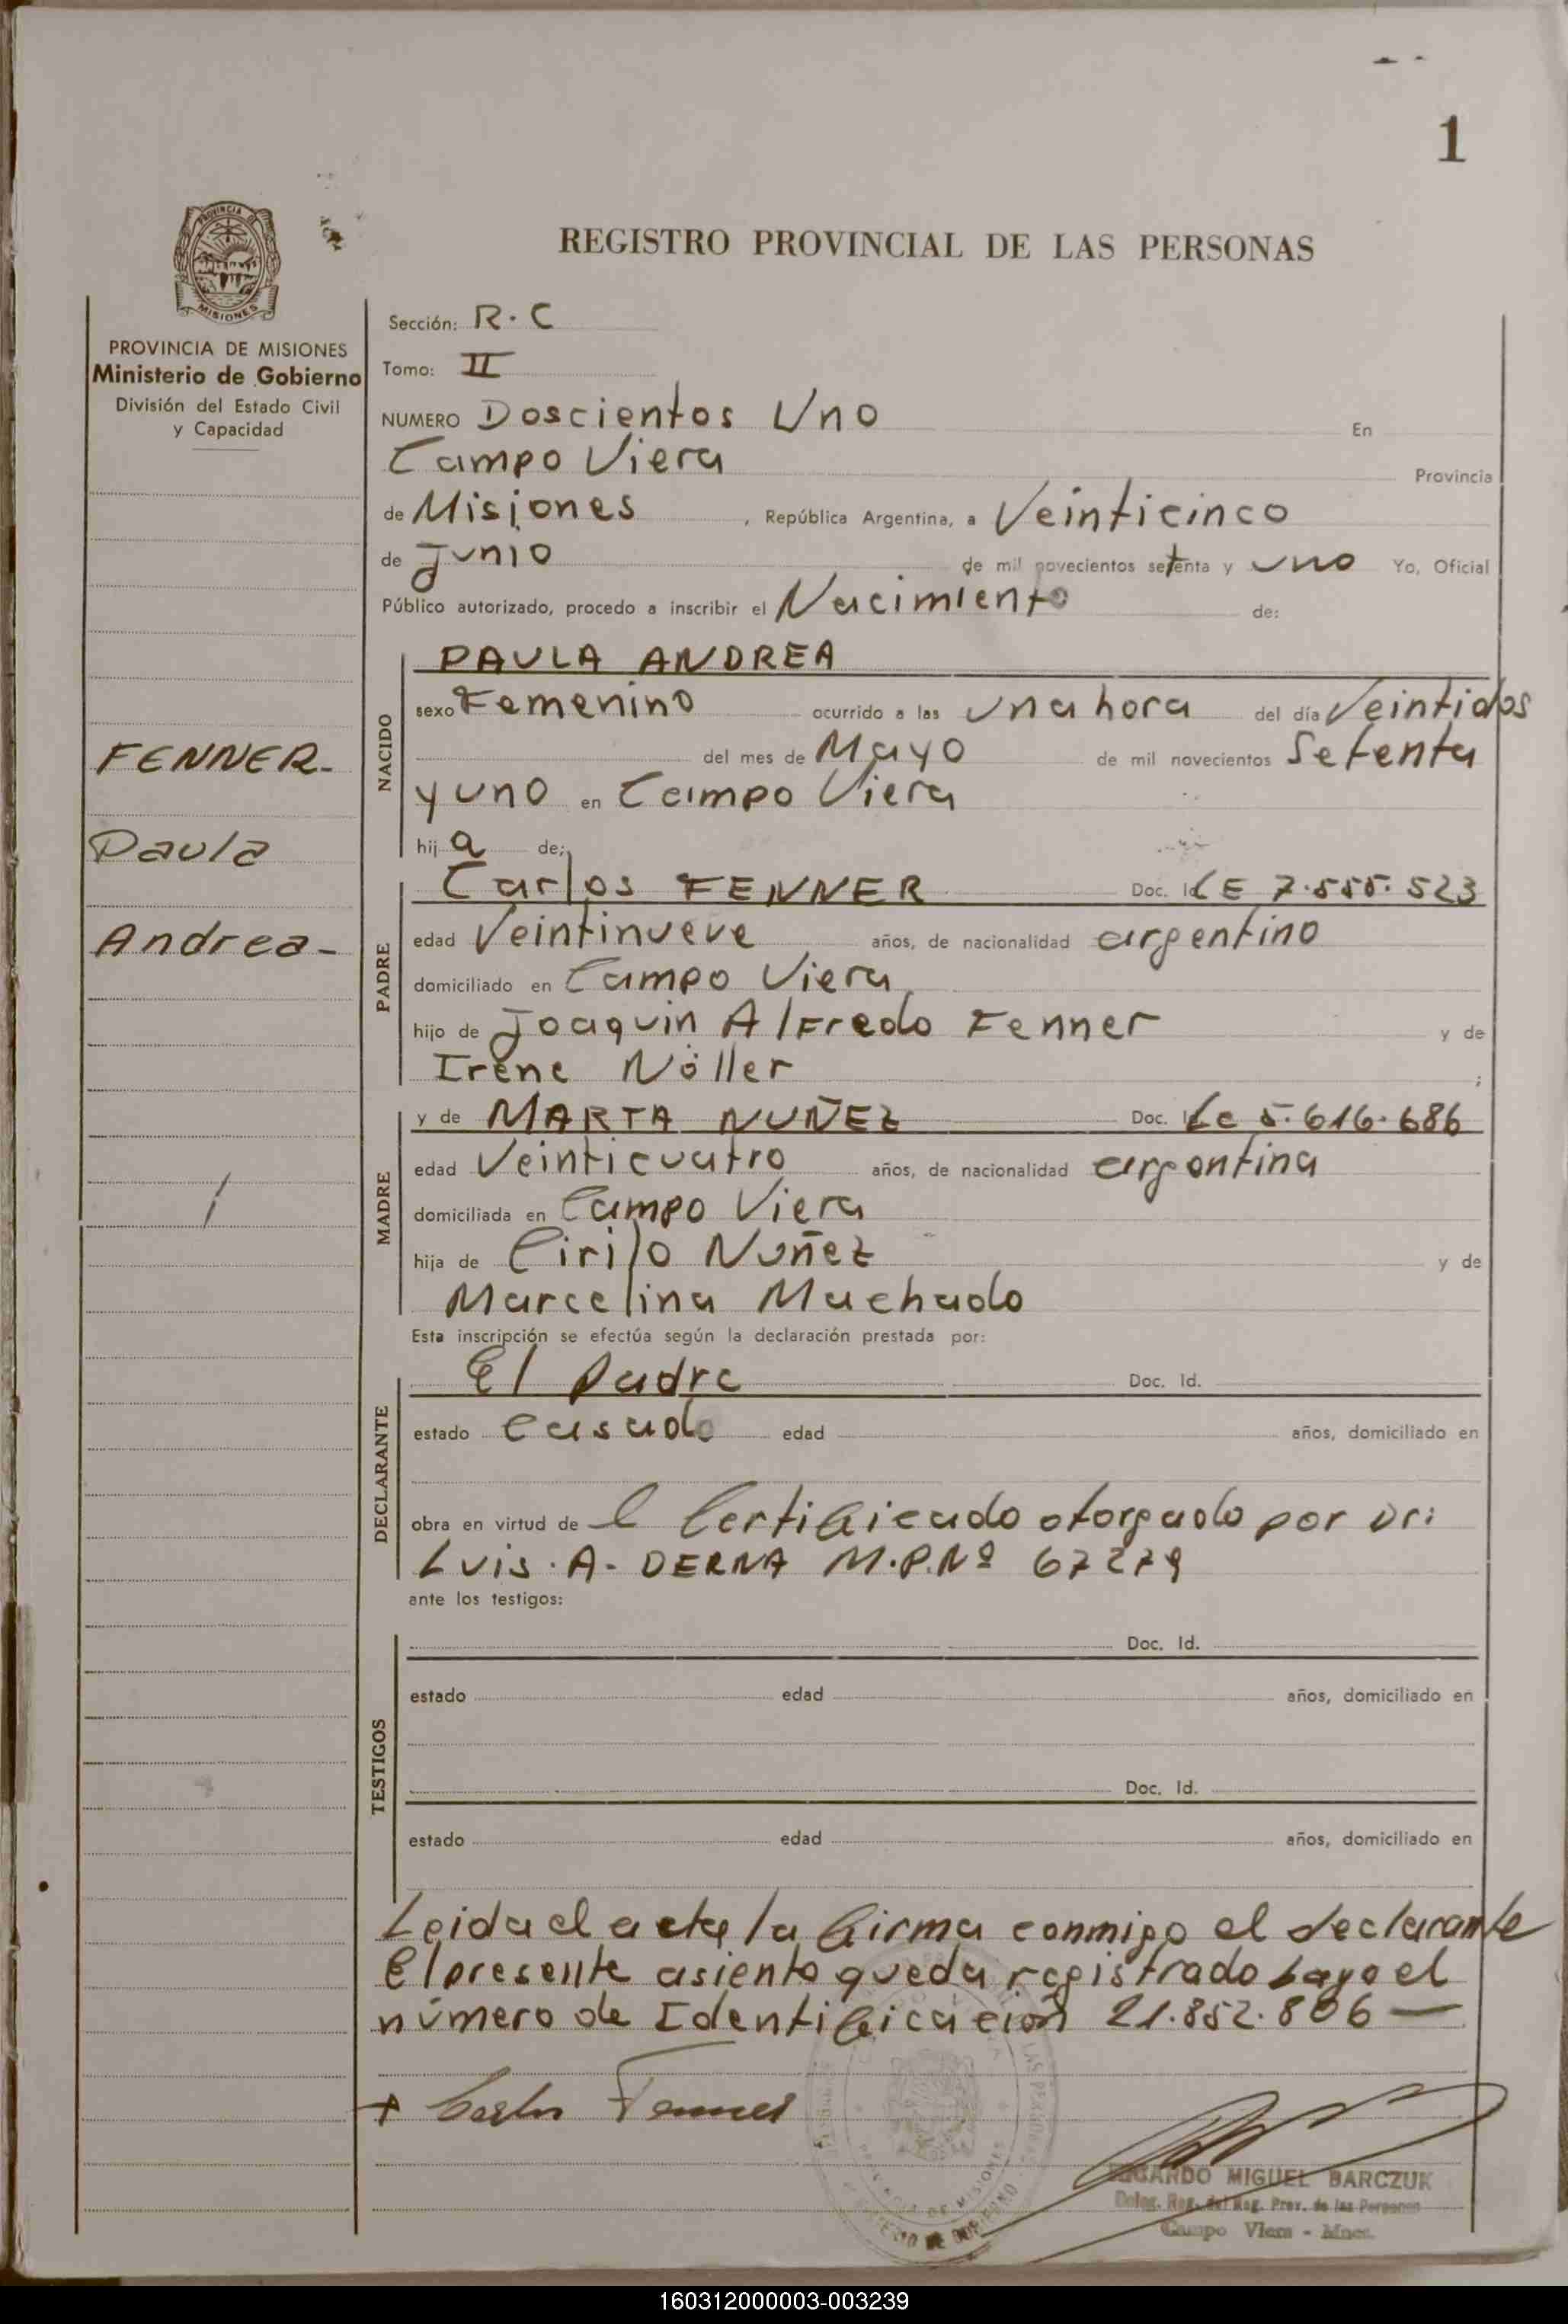 1
REGISTRO PROVINCIAL DE LAS PERSONAS
PROVINCIA DE
MISIONES
PROVINCIA DE MISIONES
Ministerio de Gobierno
División del Estado Civil
y Capacidad
FENNER-
Paula
Andrea-
Sección: R.C
Tomo: II
NUMERO Doscientos Uno En
Campo Viera Provincia
de Misiones, República Argentina, a Veinticinco
de Junio de mil novecientos setenta y uno Yo, Oficial
Público autorizado, procedo a inscribir el Nacimiento de:
NACIDO
PAULA ANDREA
sexo Femenino ocurrido a las una hora del día Veintidos
del mes de Mayo de mil novecientos Setenta
y uno en Campo Viera
hij a de:
PADRE
Carlos FENNER Doc. Id. LE 7.555.523
edad Veintinueve años, de nacionalidad argentino
domiciliado en Campo Viera
hijo de Joaquin Alfredo Fenner y de
Irene Nöller ;
MADRE
y de MARTA NUÑEZ Doc. Lc 5.616.686
edad Veinticuatro años, de nacionalidad argentina
domiciliada en Campo Viera
hija de Cirilo Nuñez y de
Marcelina Machado
Esta inscripción se efectúa según la declaración prestada por:
DECLARANTE
El Padre Doc. Id.
estado casado edad años, domiciliado en
obra en virtud de l Certificado otorgado por Dr:
LUIS. A- DERNA M.P.Nº 67279
ante los testigos:
TESTIGOS
Doc. Id.
estado edad años, domiciliado en
Doc. Id.
estado edad años, domiciliado en
Leida el acta la firma conmigo el declarante
El presente asiento queda registrado bajo el
número de Identificación 21.852.806 —
+ Carlos Fenner
MIGUEL BARCZUK
Deleg. Reg. del Reg. Prov. de las Personas
Campo Viera - Mnes.
PROVINCIA DE MISIONES
160312000003-003239